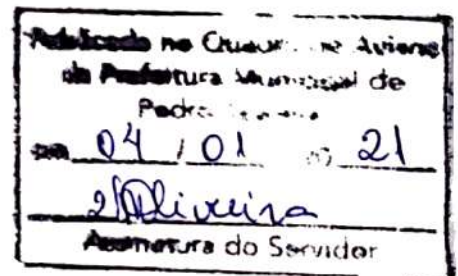 Publicado no Quadro de Avisos
da Prefeitura Municipal de
Pedra
em 04 / 01 21
Oliveira
Assinatura do Servidor